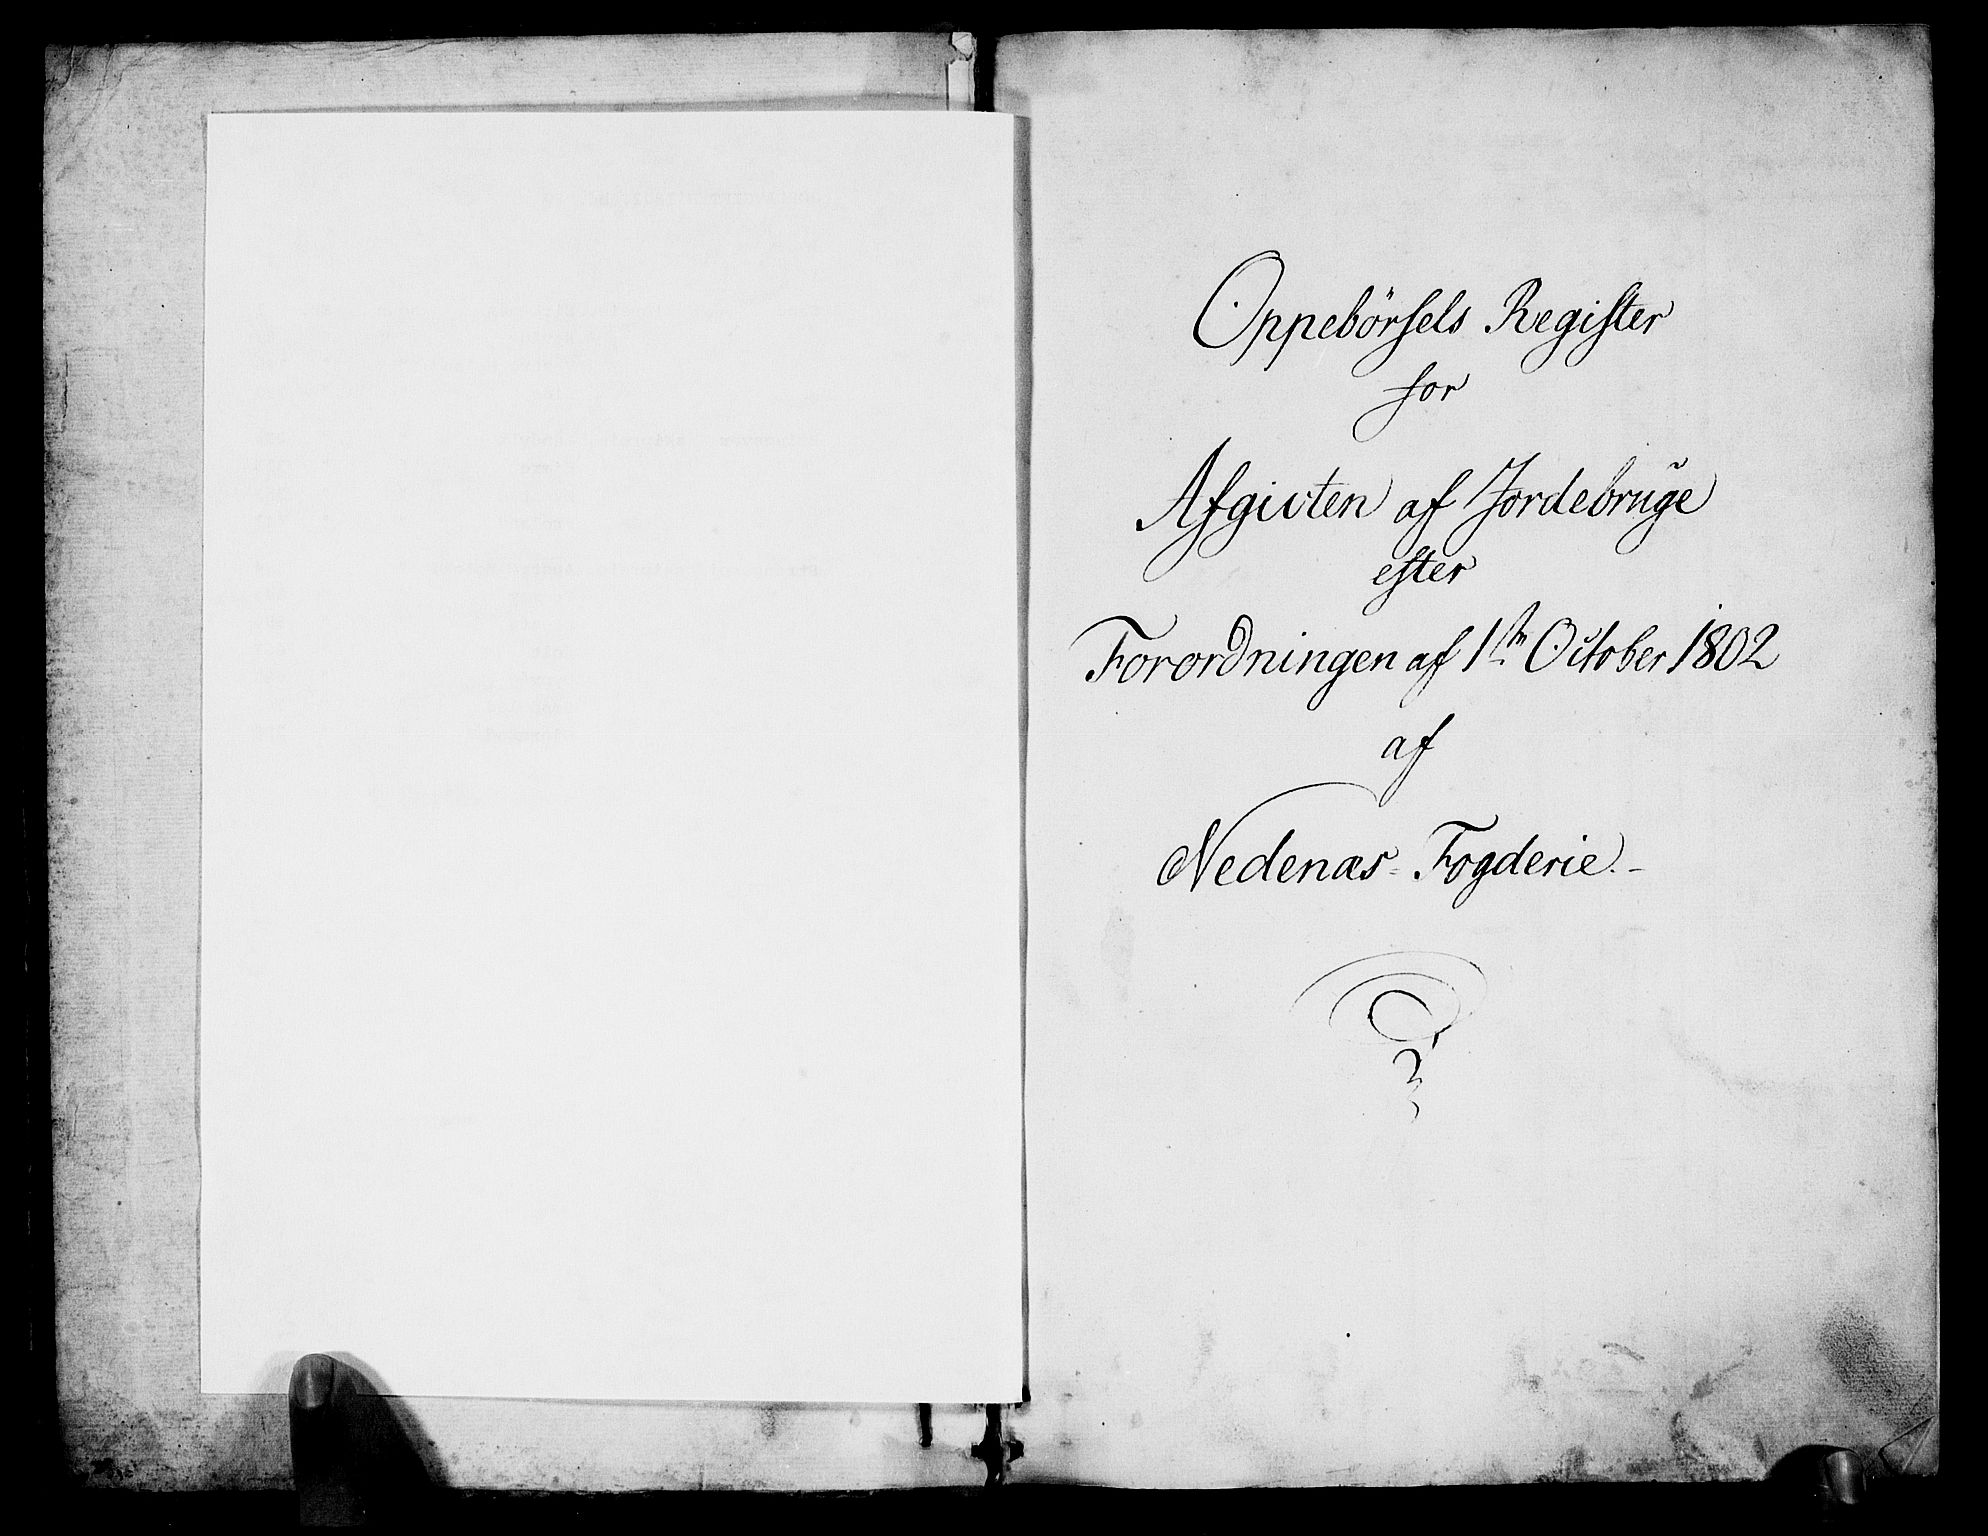 Oppebörsels Register
for
Afgivten af Jordebruge
efter
Forordningen af 1ste October 1802
af
Nedenæs Fogderie.